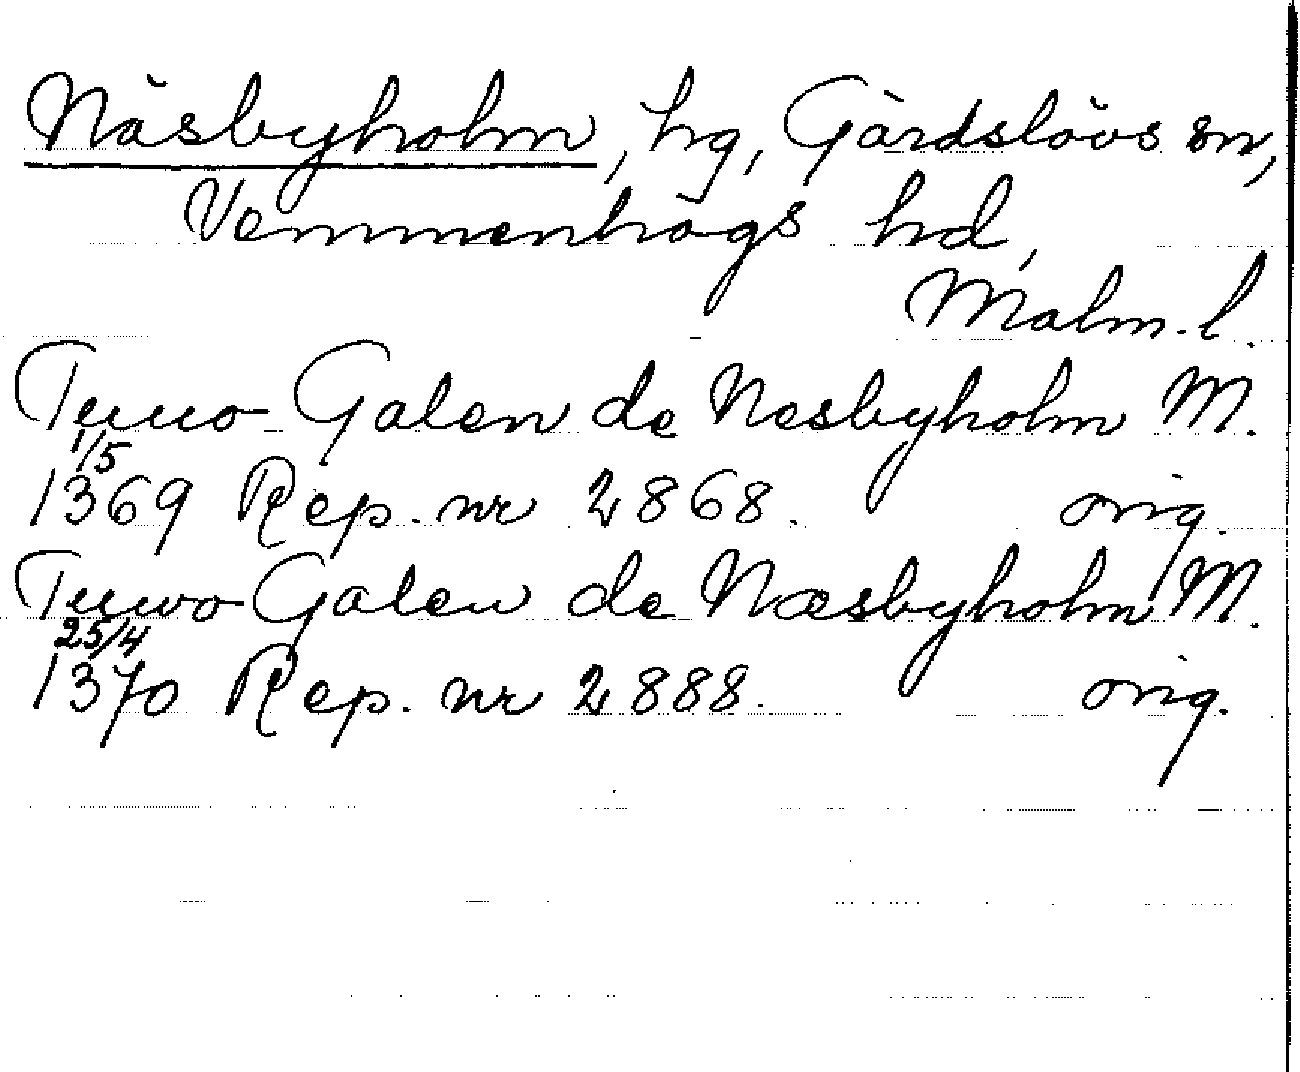 Näsbyholm, hg, Gärdslövs sn,
Vemmenhögs hd,
Malm. l.
Tuuo Galen de Nesbyholm M.
1/5
1369 Rep. nr 2868. orig.
Tuwo Galen de Næsbyholm M.
25/4
1370 Rep. nr 2888. orig.